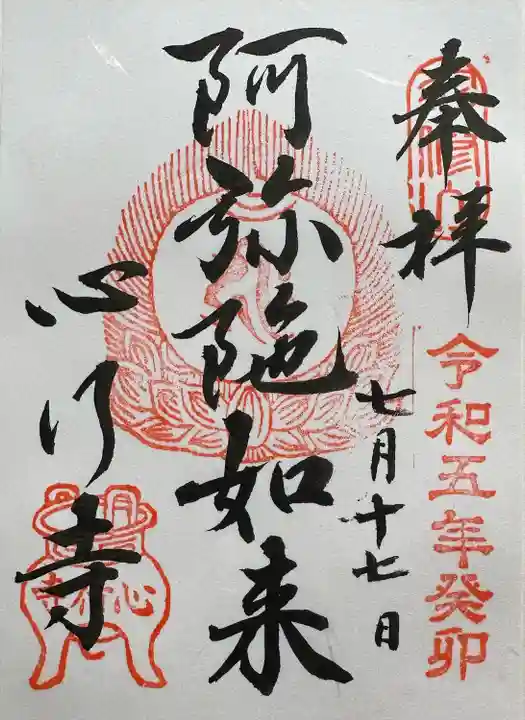 奉拝
令和五年癸卯
七月十七日
阿弥陁如来
心行寺